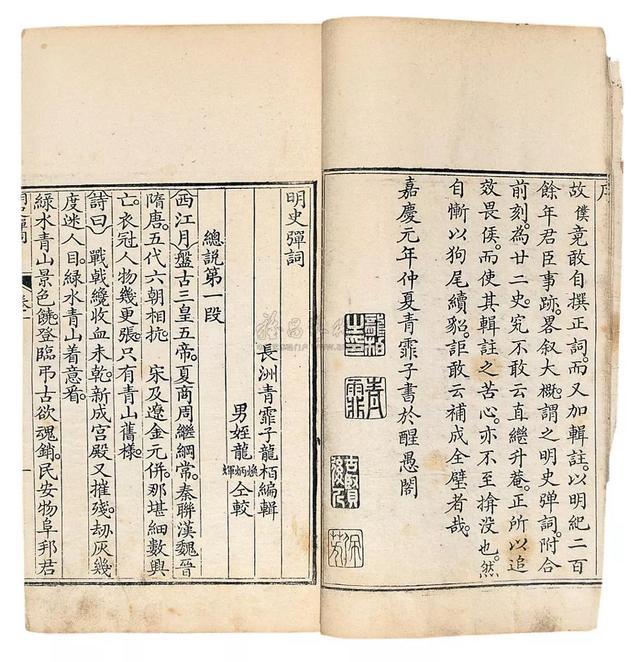 序
故僕竟敢自撰正詞。而又加輯註。以明紀二百
餘年君臣事跡。畧叙大概。謂之明史彈詞。附合
前刻。為廿二史。究不敢云直繼升菴。正所以追
效畏侯。而使其輯註之苦心。亦不至揜没也。然
自慚以狗尾續貂。詎敢云補成全璧者哉
嘉慶元年仲夏青霏子書於醒愚閣
明史彈詞
長洲青霏子龍栢編輯
男姪龍煥炳輝仝較
總說第一段
西江月盤古三皇五帝。夏商周繼綱常。秦聯漢魏晉
隋唐。五代六朝相抗。宋及遼金元併。那堪細數興
亡。衣冠人物幾更張。只有青山舊樣。
詩曰 戰戟纔收血未乾。新成宮殿又摧殘。劫灰幾
度迷人目。緑水青山着意看。
緑水青山景色饒。登臨弔古欲魂銷。民安物阜邦君